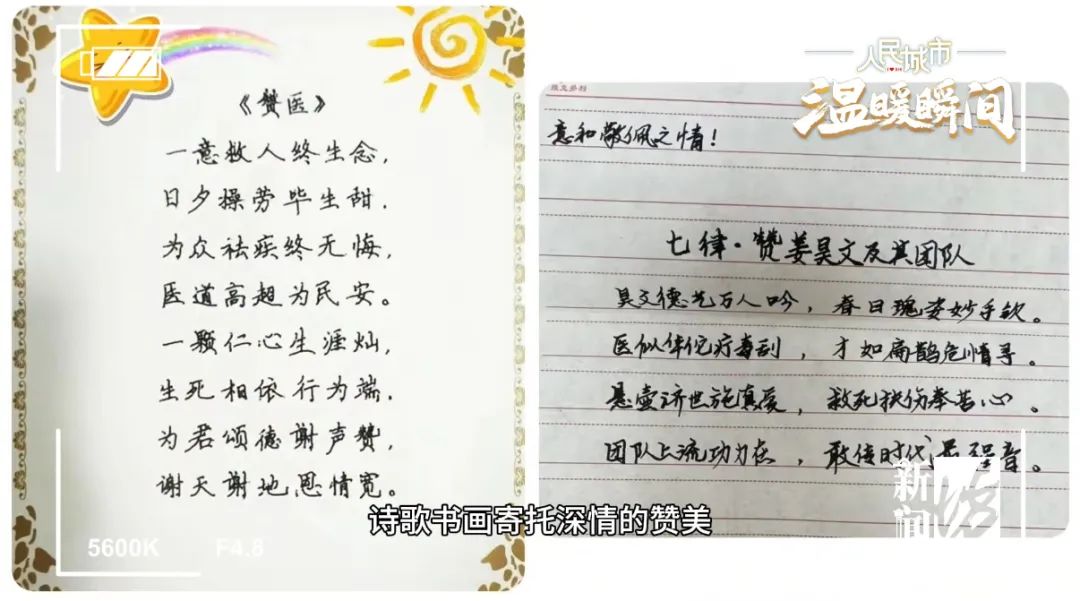 《赞医》
一意救人终生念,
日夕操劳毕生甜.
为众祛疾终无悔,
医道高超为民安。
一颗仁心生涯灿,
生死相依行为端.
为君颂德谢声赞,
谢天谢地恩情宽。
人民城市
温暖瞬间
意和敬佩之情!
七律·赞姜昊文及其团队
昊文德艺万人吟，春日瑰姿妙手钦。
医似华佗疗毒刮，才如扁鹊危情寻。
悬壶济世施真爱，救死扶伤奉苦心。
团队上流功力在，敢传时代最强音。
新闻
诗歌书画寄托深情的赞美
5600K
F4.8